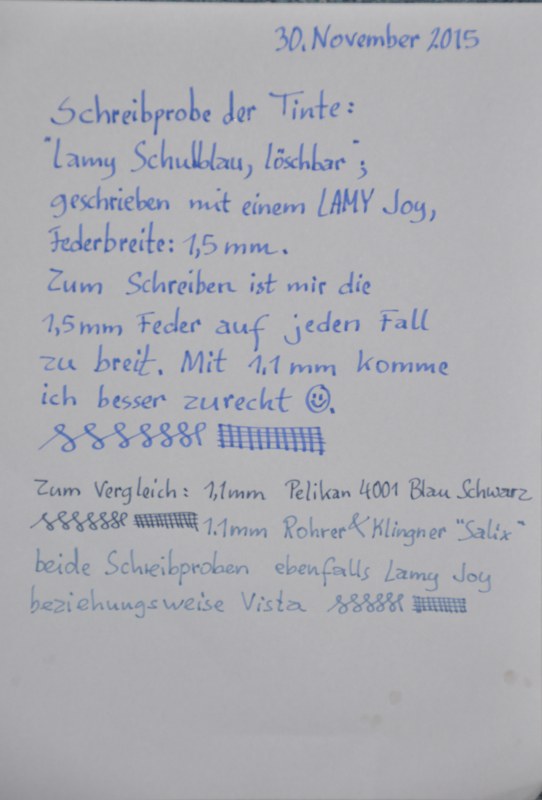 30. November 2015
Schreibprobe der Tinte:
"Lamy Schulblau, löschbar";
geschrieben mit einem LAMY Joy,
Federbreite: 1,5 mm.
Zum Schreiben ist mir die
1,5 mm Feder auf jeden Fall
zu breit. Mit 1.1 mm komme
ich besser zurecht ☺.
Zum Vergleich: 1,1mm Pelikan 4001 Blau Schwarz
1.1mm Rohrer & Klingner "Salix"
beide Schreibproben ebenfalls Lamy Joy
beziehungsweise Vista